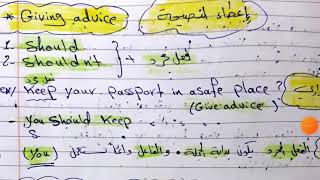 * Giving advice إعطاء النصيحة
1. Should
2. Shouldn't } + فعل مجرد
ex/ Keep your passport in a safe place?
(Give advice)
- you should keep
S
(you) الفعل المجرد يكون بداية الجملة والفاعل